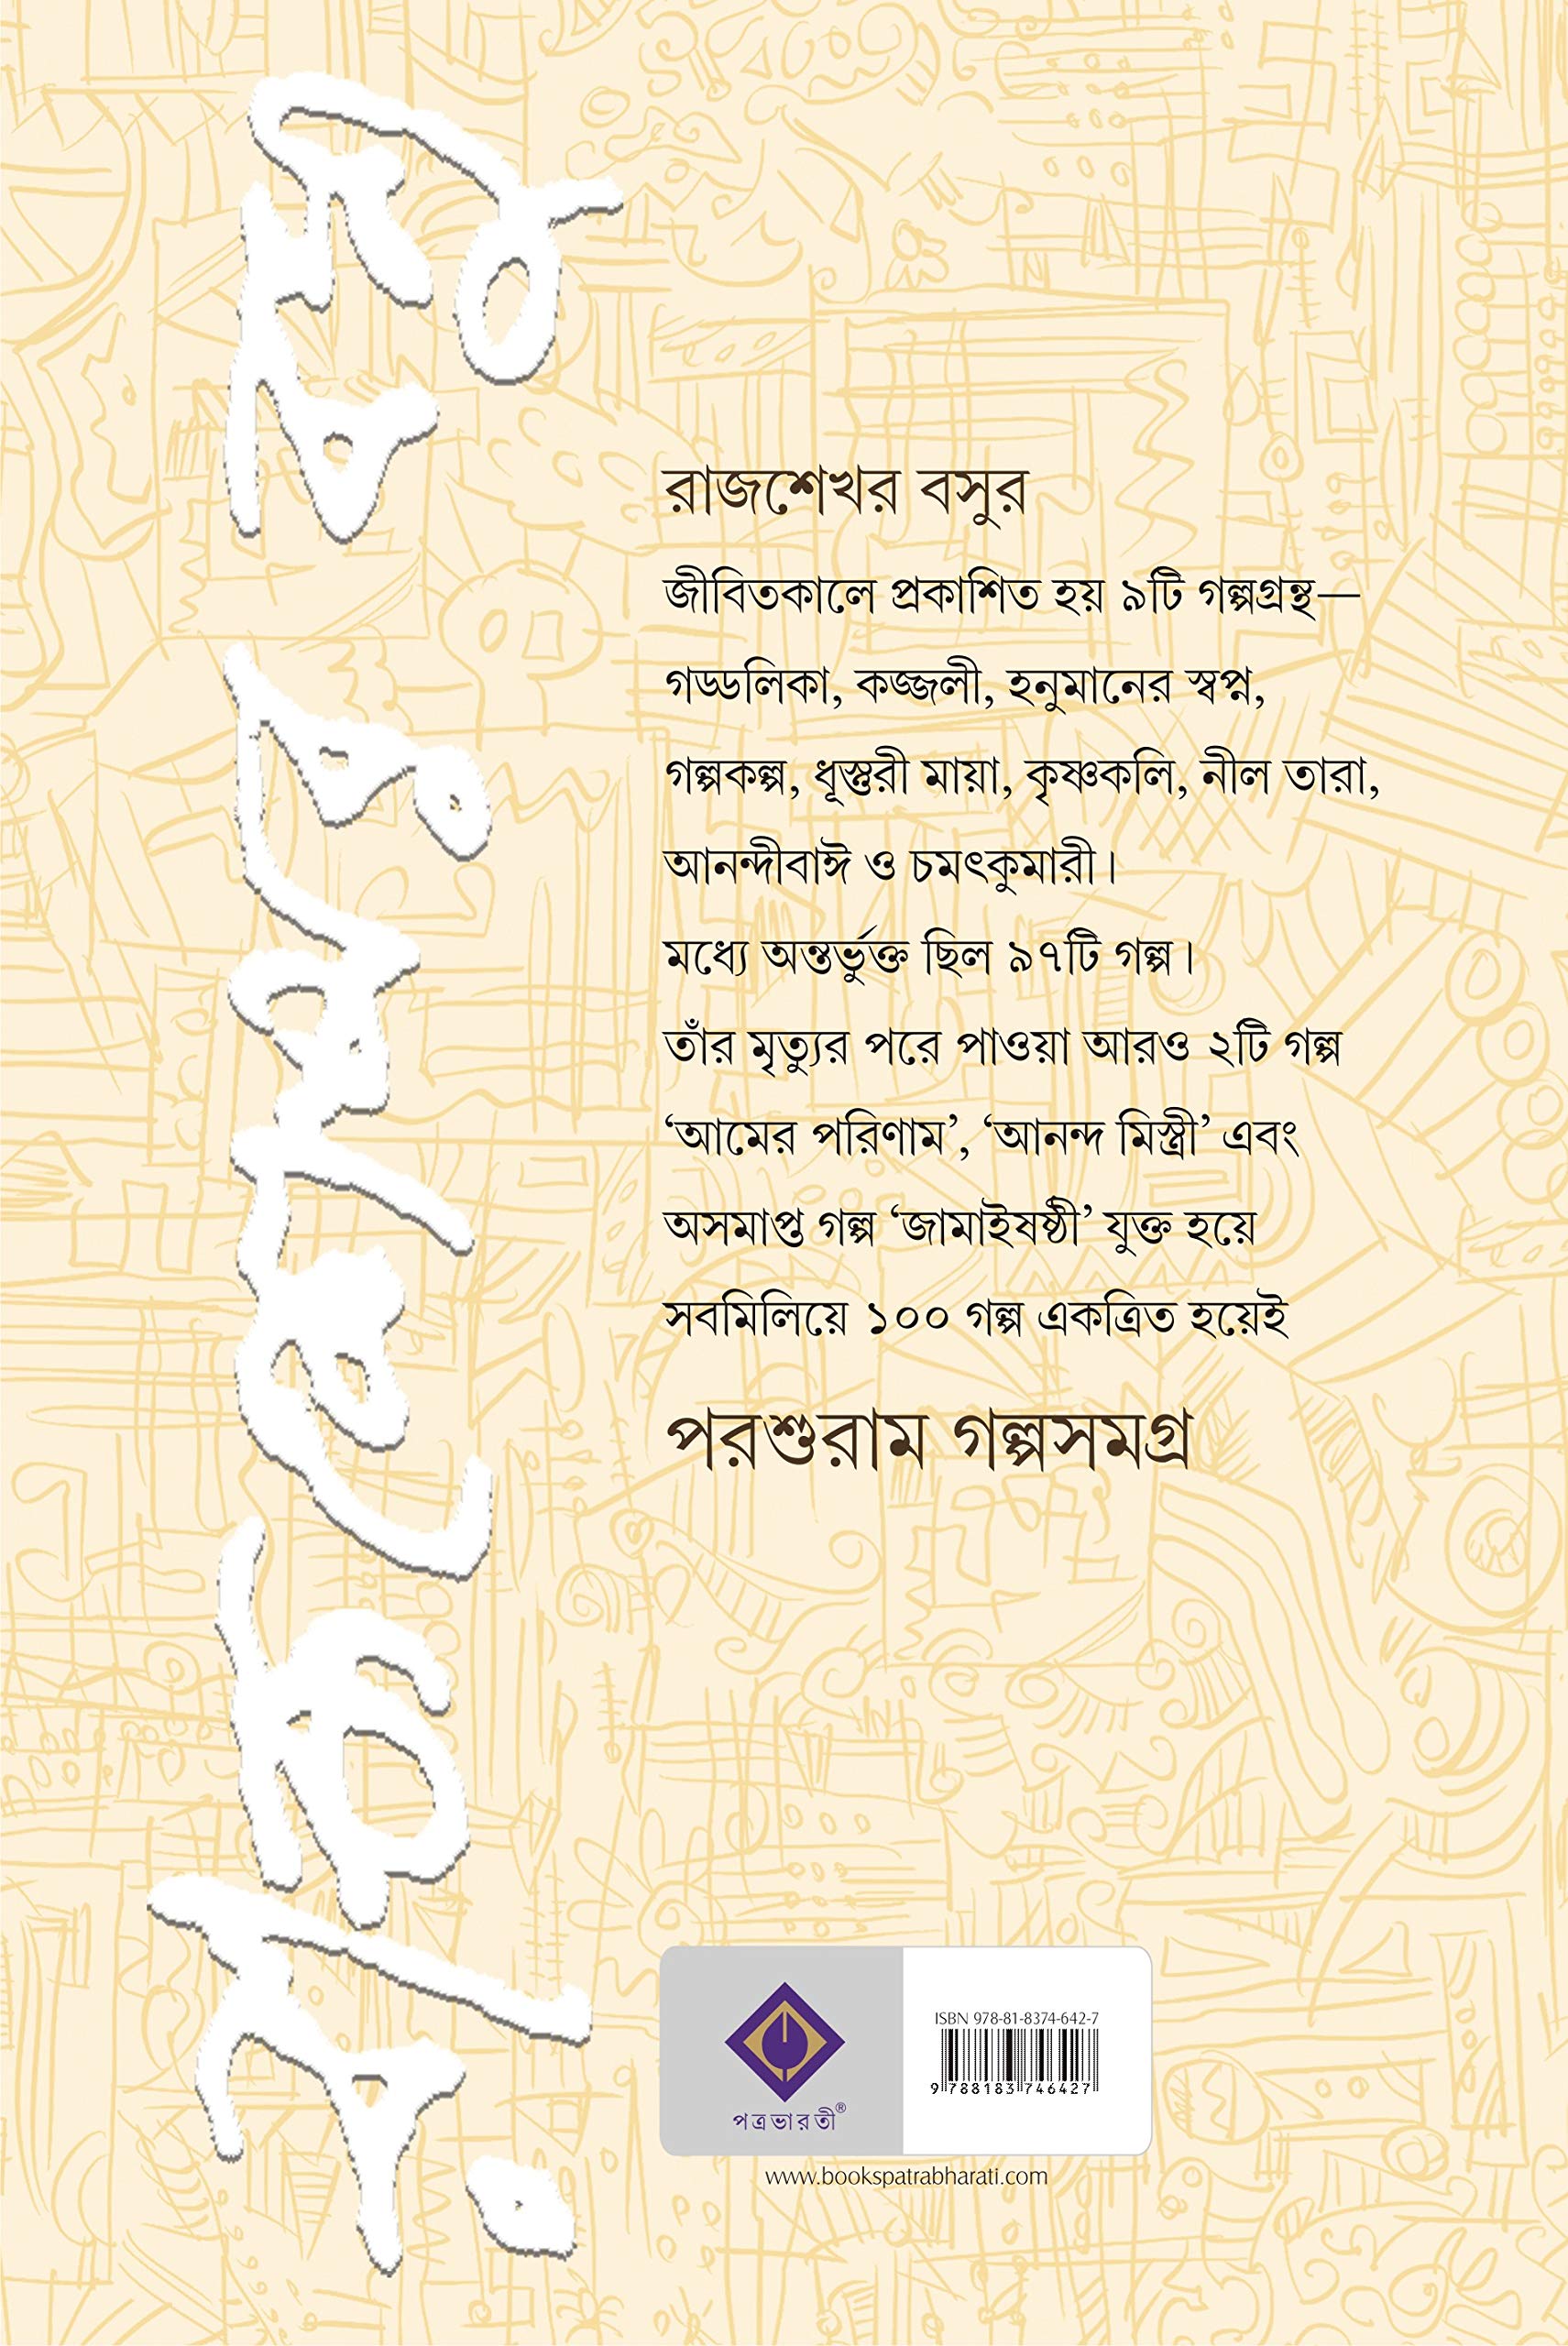 রাজশেখর বসু
রাজশেখর বসুর
জীবিতকালে প্রকাশিত হয় ৯টি গল্পগ্রন্থ—
গড্ডলিকা, কজ্জলী, হনুমানের স্বপ্ন,
গল্পকল্প, ধূস্তুরী মায়া, কৃষ্ণকলি, নীল তারা,
আনন্দীবাঈ ও চমৎকুমারী।
মধ্যে অন্তর্ভুক্ত ছিল ৯৭টি গল্প।
তাঁর মৃত্যুর পরে পাওয়া আরও ২টি গল্প
‘আমের পরিণাম’, ‘আনন্দ মিস্ত্রী’ এবং
অসমাপ্ত গল্প ‘জামাইষষ্ঠী’ যুক্ত হয়ে
সবমিলিয়ে ১০০ গল্প একত্রিত হয়েই
পরশুরাম গল্পসমগ্র
পত্রভারতী®
ISBN 978-81-8374-642-7
9 788183 746427
www.bookspatrabharati.com